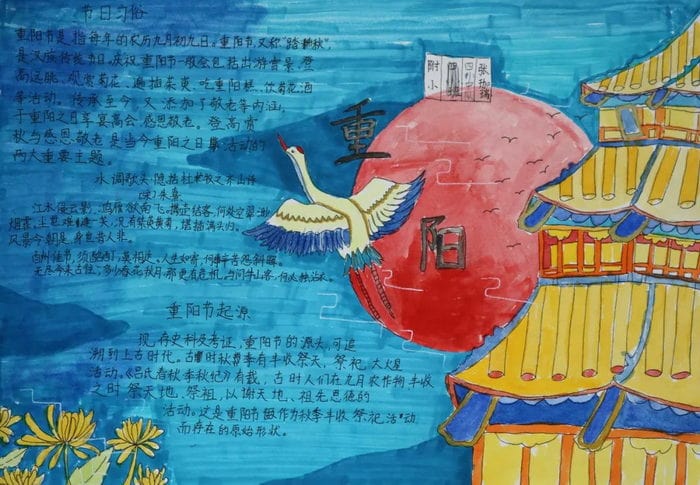 节日习俗
重阳节是指每年的农历九月初九日。重阳节，又称"踏秋"，
是汉族传统节日。庆祝重阳节一般会包括出游赏景、登
高远眺、观赏菊花、遍插茱萸、吃重阳糕、饮菊花酒
等活动。传承至今，又添加了敬老等内涵，
于重阳之日享宴高会，感恩敬老。登高赏
秋与感恩敬老是当今重阳之日节活动的
两大重要主题。
水调歌头·隐括杜牧之齐山诗
(宋)朱熹
江水浸云影，鸿雁欲南飞。携壶结客，何处空翠渺
烟霏。尘世难逢一笑，况有紫萸黄菊，堪插满头归。
风景今朝是，身世昔人非。
酬佳节，须酩酊，莫相违。人生如寄，何事辛苦怨斜晖。
无尽今来古往，多少春花秋月，那更有危机。与问牛山客，何必独沾衣。
重阳节起源
现存史料及考证，重阳节的源头，可追
溯到上古时代。古时秋季有丰收祭天、祭祀大火星
活动。《吕氏春秋·季秋纪》有载，古时人们在九月农作物丰收
之时祭天地、祭祖，以谢天地、祖先恩德的
活动。这是重阳节作为秋季丰收祭祀活动
而存在的原始形状。
重
阳
附小